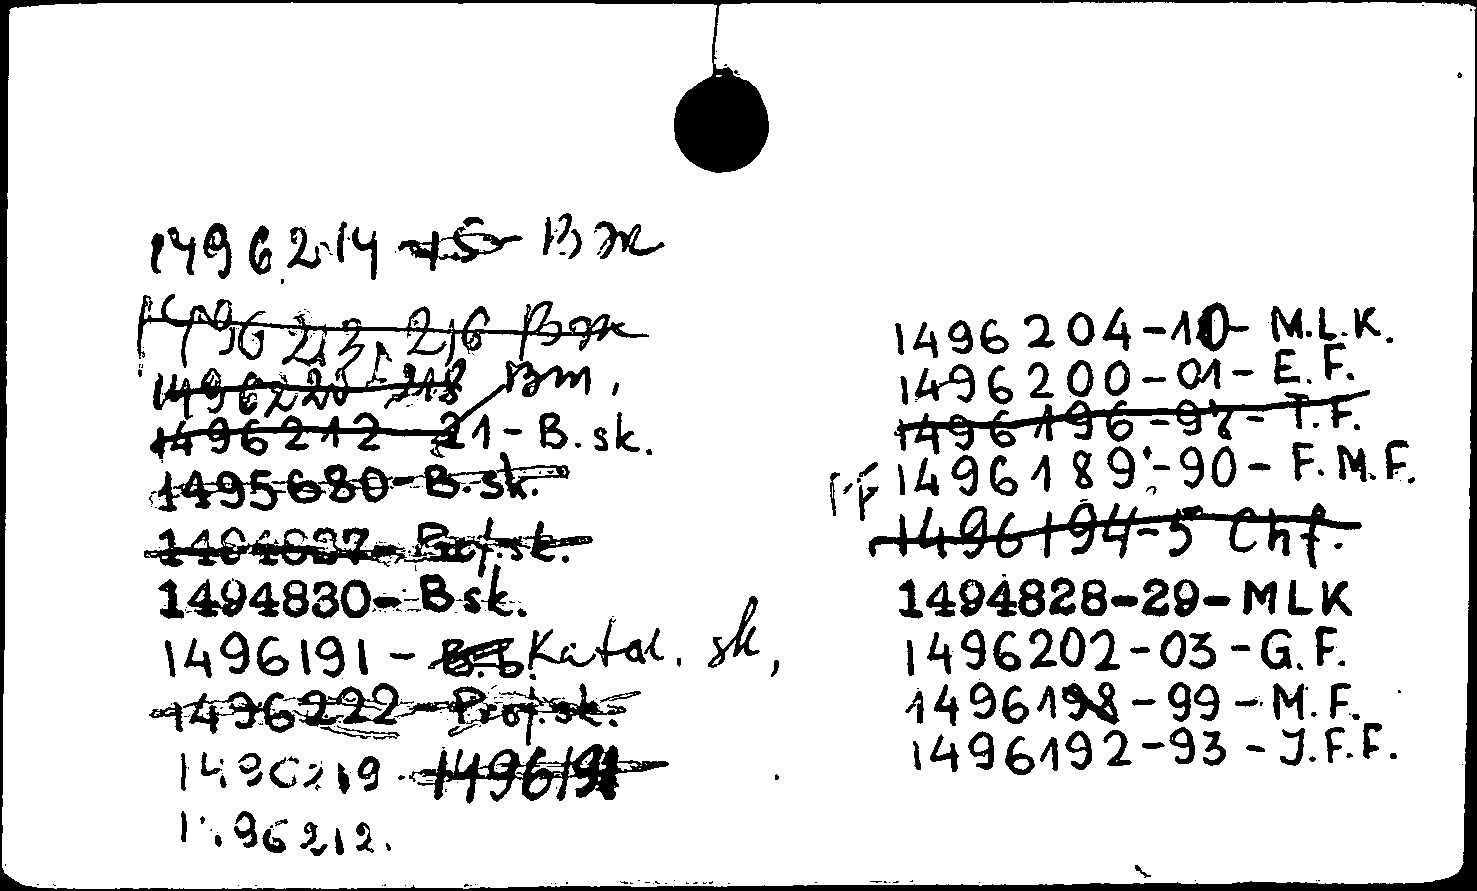 1496214-15- B m
1496213, 216 Bm
1496220 218 Bm,
1496212 21-B.sk.
1495680-B.sk.
1494827- Proj.sk.
1494830- Bsk.
1496191- Katal. sk,
1496222- Proj.sk.
1496219. 1496191
1496212.
1496204-10- M.L.K.
1496200-01- E.F.
1496196-97- T.F.
FF 1496189-90- F.M.F.
1496194-5 Chf.
1494828-29-MLK
1496202-03-G.F.
1496198-99-M.F.
1496192-93-J.F.F.